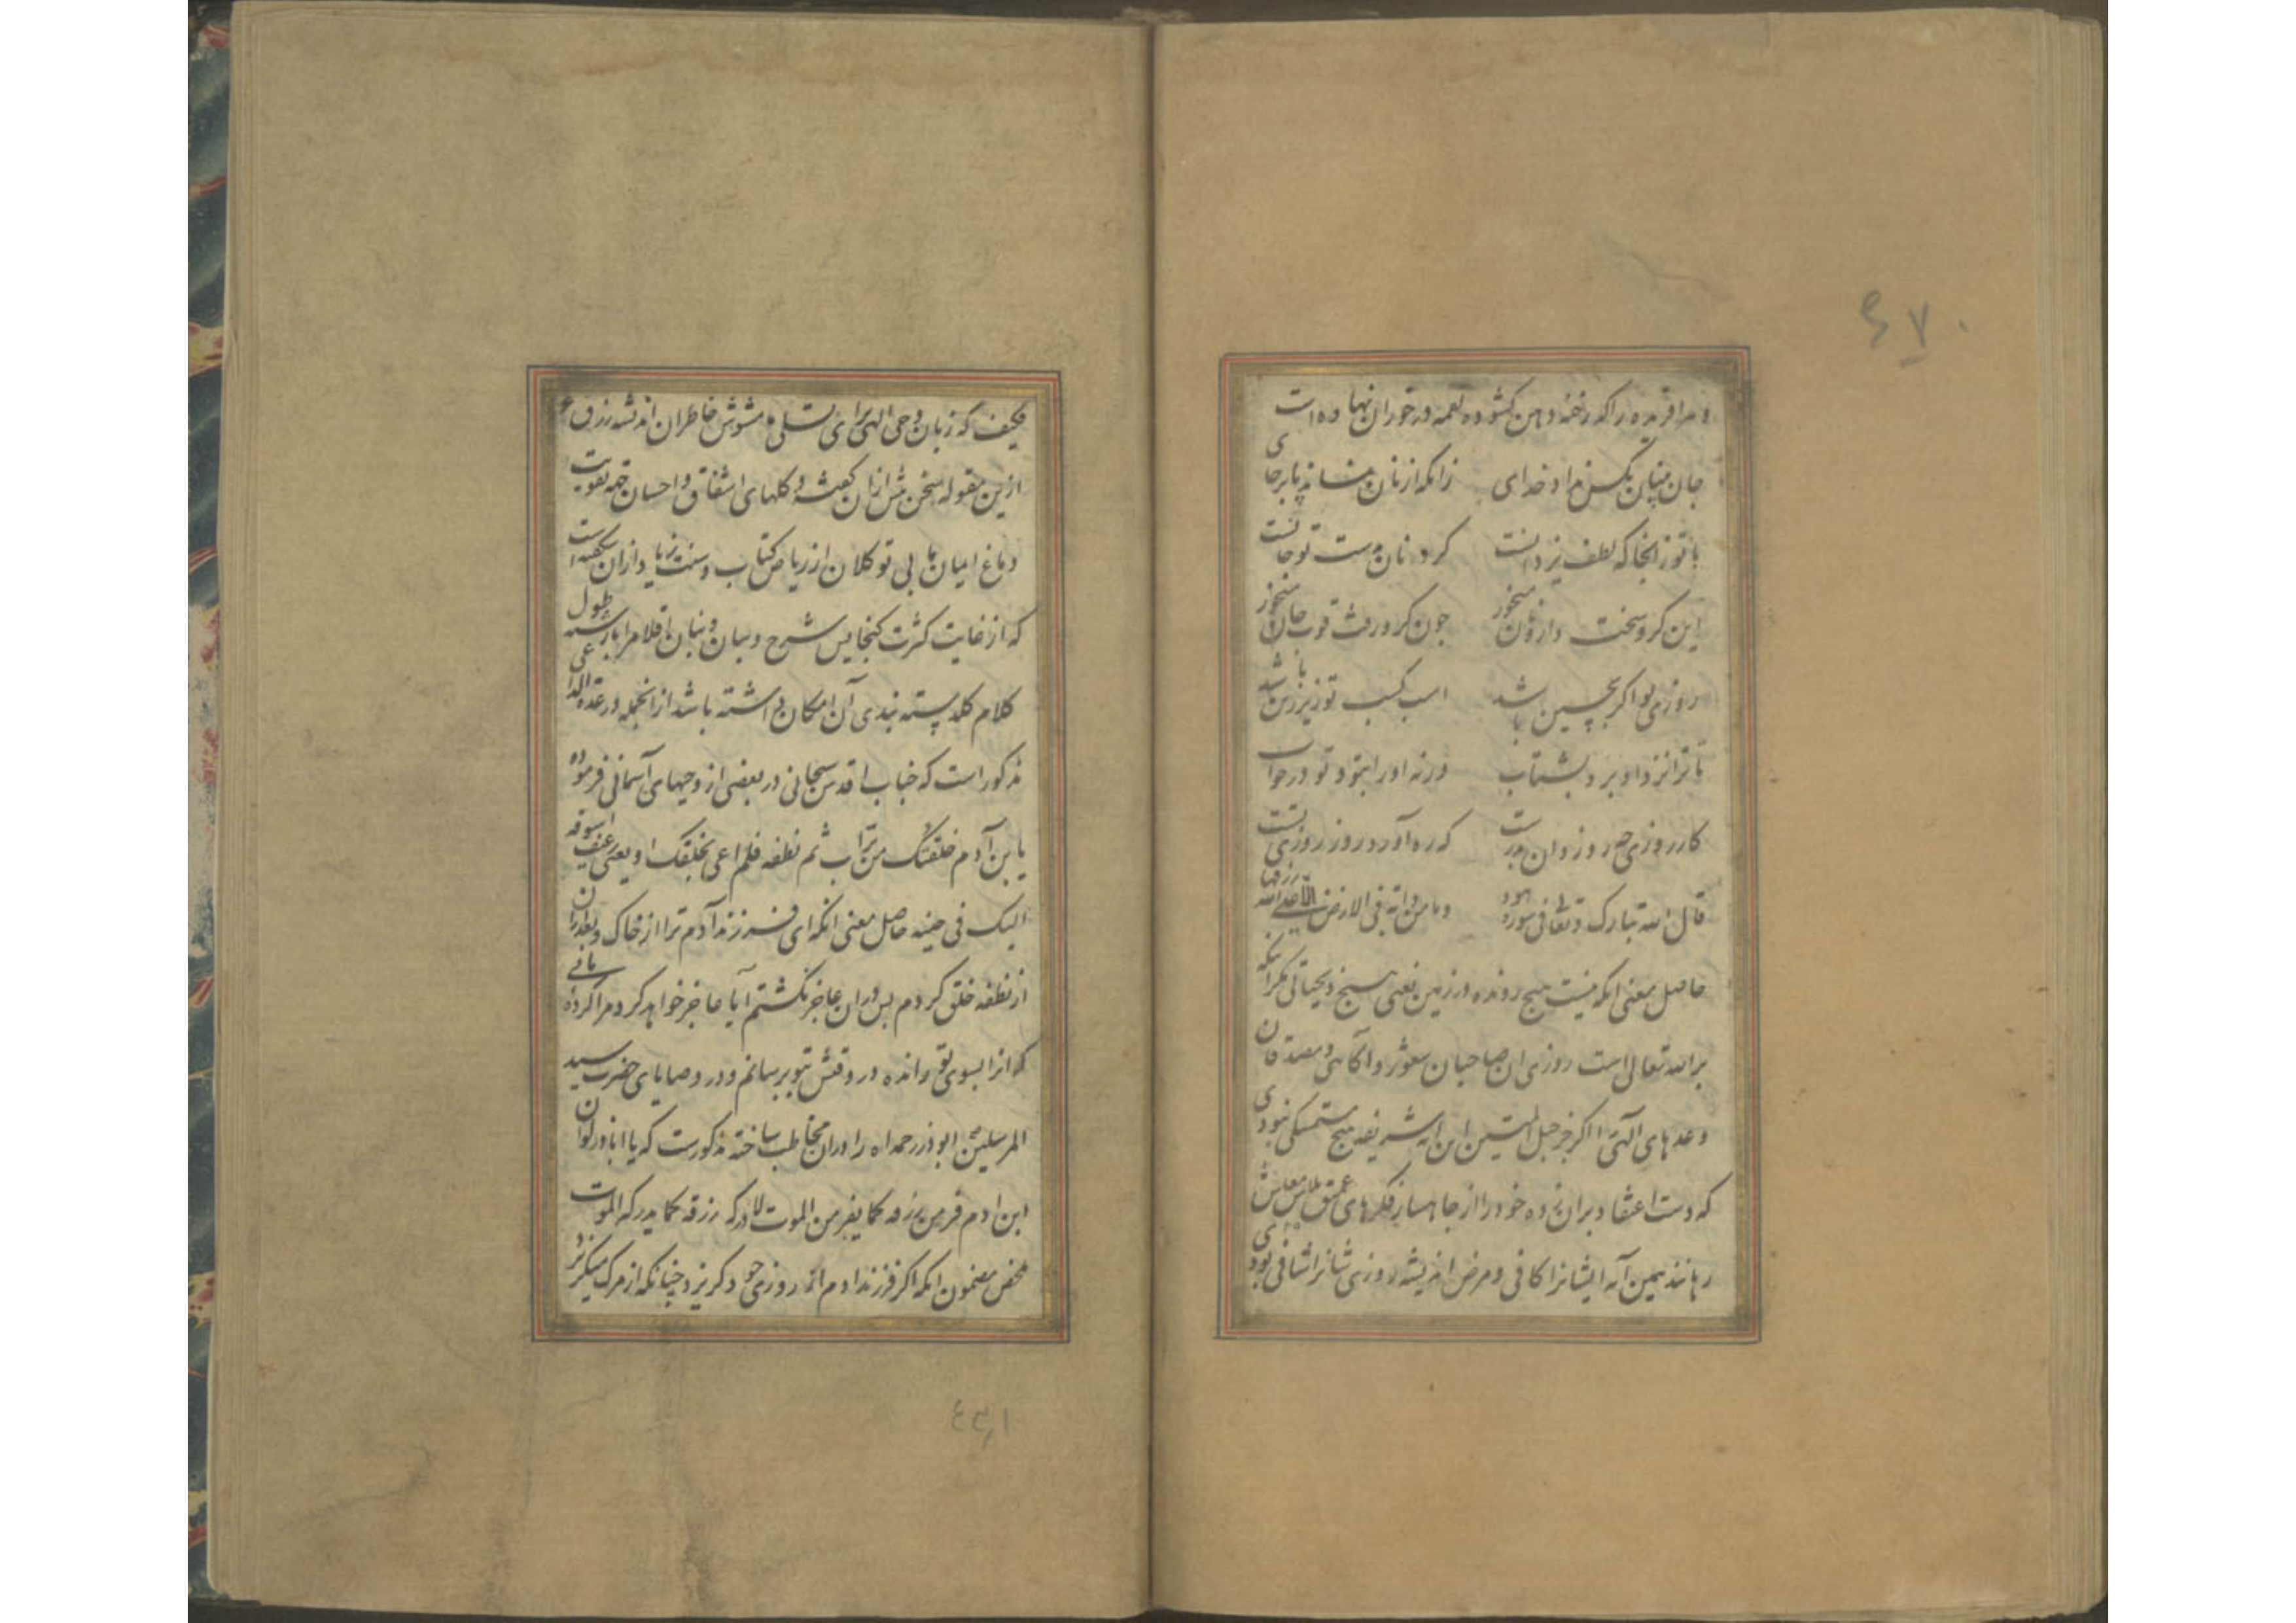 و هر آفریده را که رخنه دهن کشوده لقمه در خور آن نهاده است
جان بی نان بکس نداد خدای زانکه از نان بماند جان بر جای
با تو زانجا که لطف یزدانست کرو نان بدست تو جانست
این کرو سخت دار و نان میخور چون کرو رفت قوت جان میخور
روزی تو اکر بچین باشد اسب کسب تو زیر زین باشد
تا ترا نزد او برد بشتاب ورنه او را بتو تو در خواب
کار روزی چو روز دان بدرست که ره آورد روز روزی تست
قال الله تبارک و تعالی فی سوره هود وما من دابة فی الارض الا علی الله رزقها
حاصل معنی انکه نیست هیچ رونده در زمین یعنی هیچ ذیحیاتی مکر انکه
بر الله تعالی است روزی ان صاحبان شعور و آکاهی و مصدقان
وعدهای الهی را اکر جز حبل المتین این آیه شریفه هیچ متمسکی نبودی
که دست اعتقاد بران زده خود را از جاهسار فکرهای عمیق تلاش معاش
رهانند همین آیه ایشانرا کافی و مرض اندیشه روزی شانرا شافی بودی
۴۷۰
فکیف که زبان وحی الهی برای تسلی مشوش خاطران اندیشه رزق
ازین مقوله سخن بیش از ان گفته و کلهای اشفاق و احسان جهة تقویت
دماغ ایمان بی توکلان از ریاض کتاب و سنت زیاد از ان شکفته است
که از غایت کثرت کنجایش شرح و بیان و بنان اقلام را با رشته طول
کلام کلدسته بندی آن امکان داشته باشد از انجمله در عدة الداعی
مذکور است که جناب اقدس سبحانی در بعضی از وحیهای آسمانی فرموده
یا بن آدم خلقتک من تراب ثم نطفه فلم اعی بخلقک او یعیینی رغیف اسوقه
الیک فی حینه حاصل معنی انکه ای فرزند آدم ترا از خاک و بعد از ان
از نطفه خلق کردم پس در ان عاجز نکشتم آیا عاجز خواهد کرد مرا کرده نانی
که انرا بسوی تو رانده در وقتش بتو برسانم و در وصایای حضرت سید
المرسلین ابوذر رحمه اله را در ان مخاطب ساخته مذکورست که یا اباذر لو ان
ابن ادم فر من رزقه کما یفر من الموت لادرکه رزقه کما یدرکه الموت
محض مضمون انکه اکر فرزند ادم از روزی خود کریزد چنانکه از مرک میکریزد